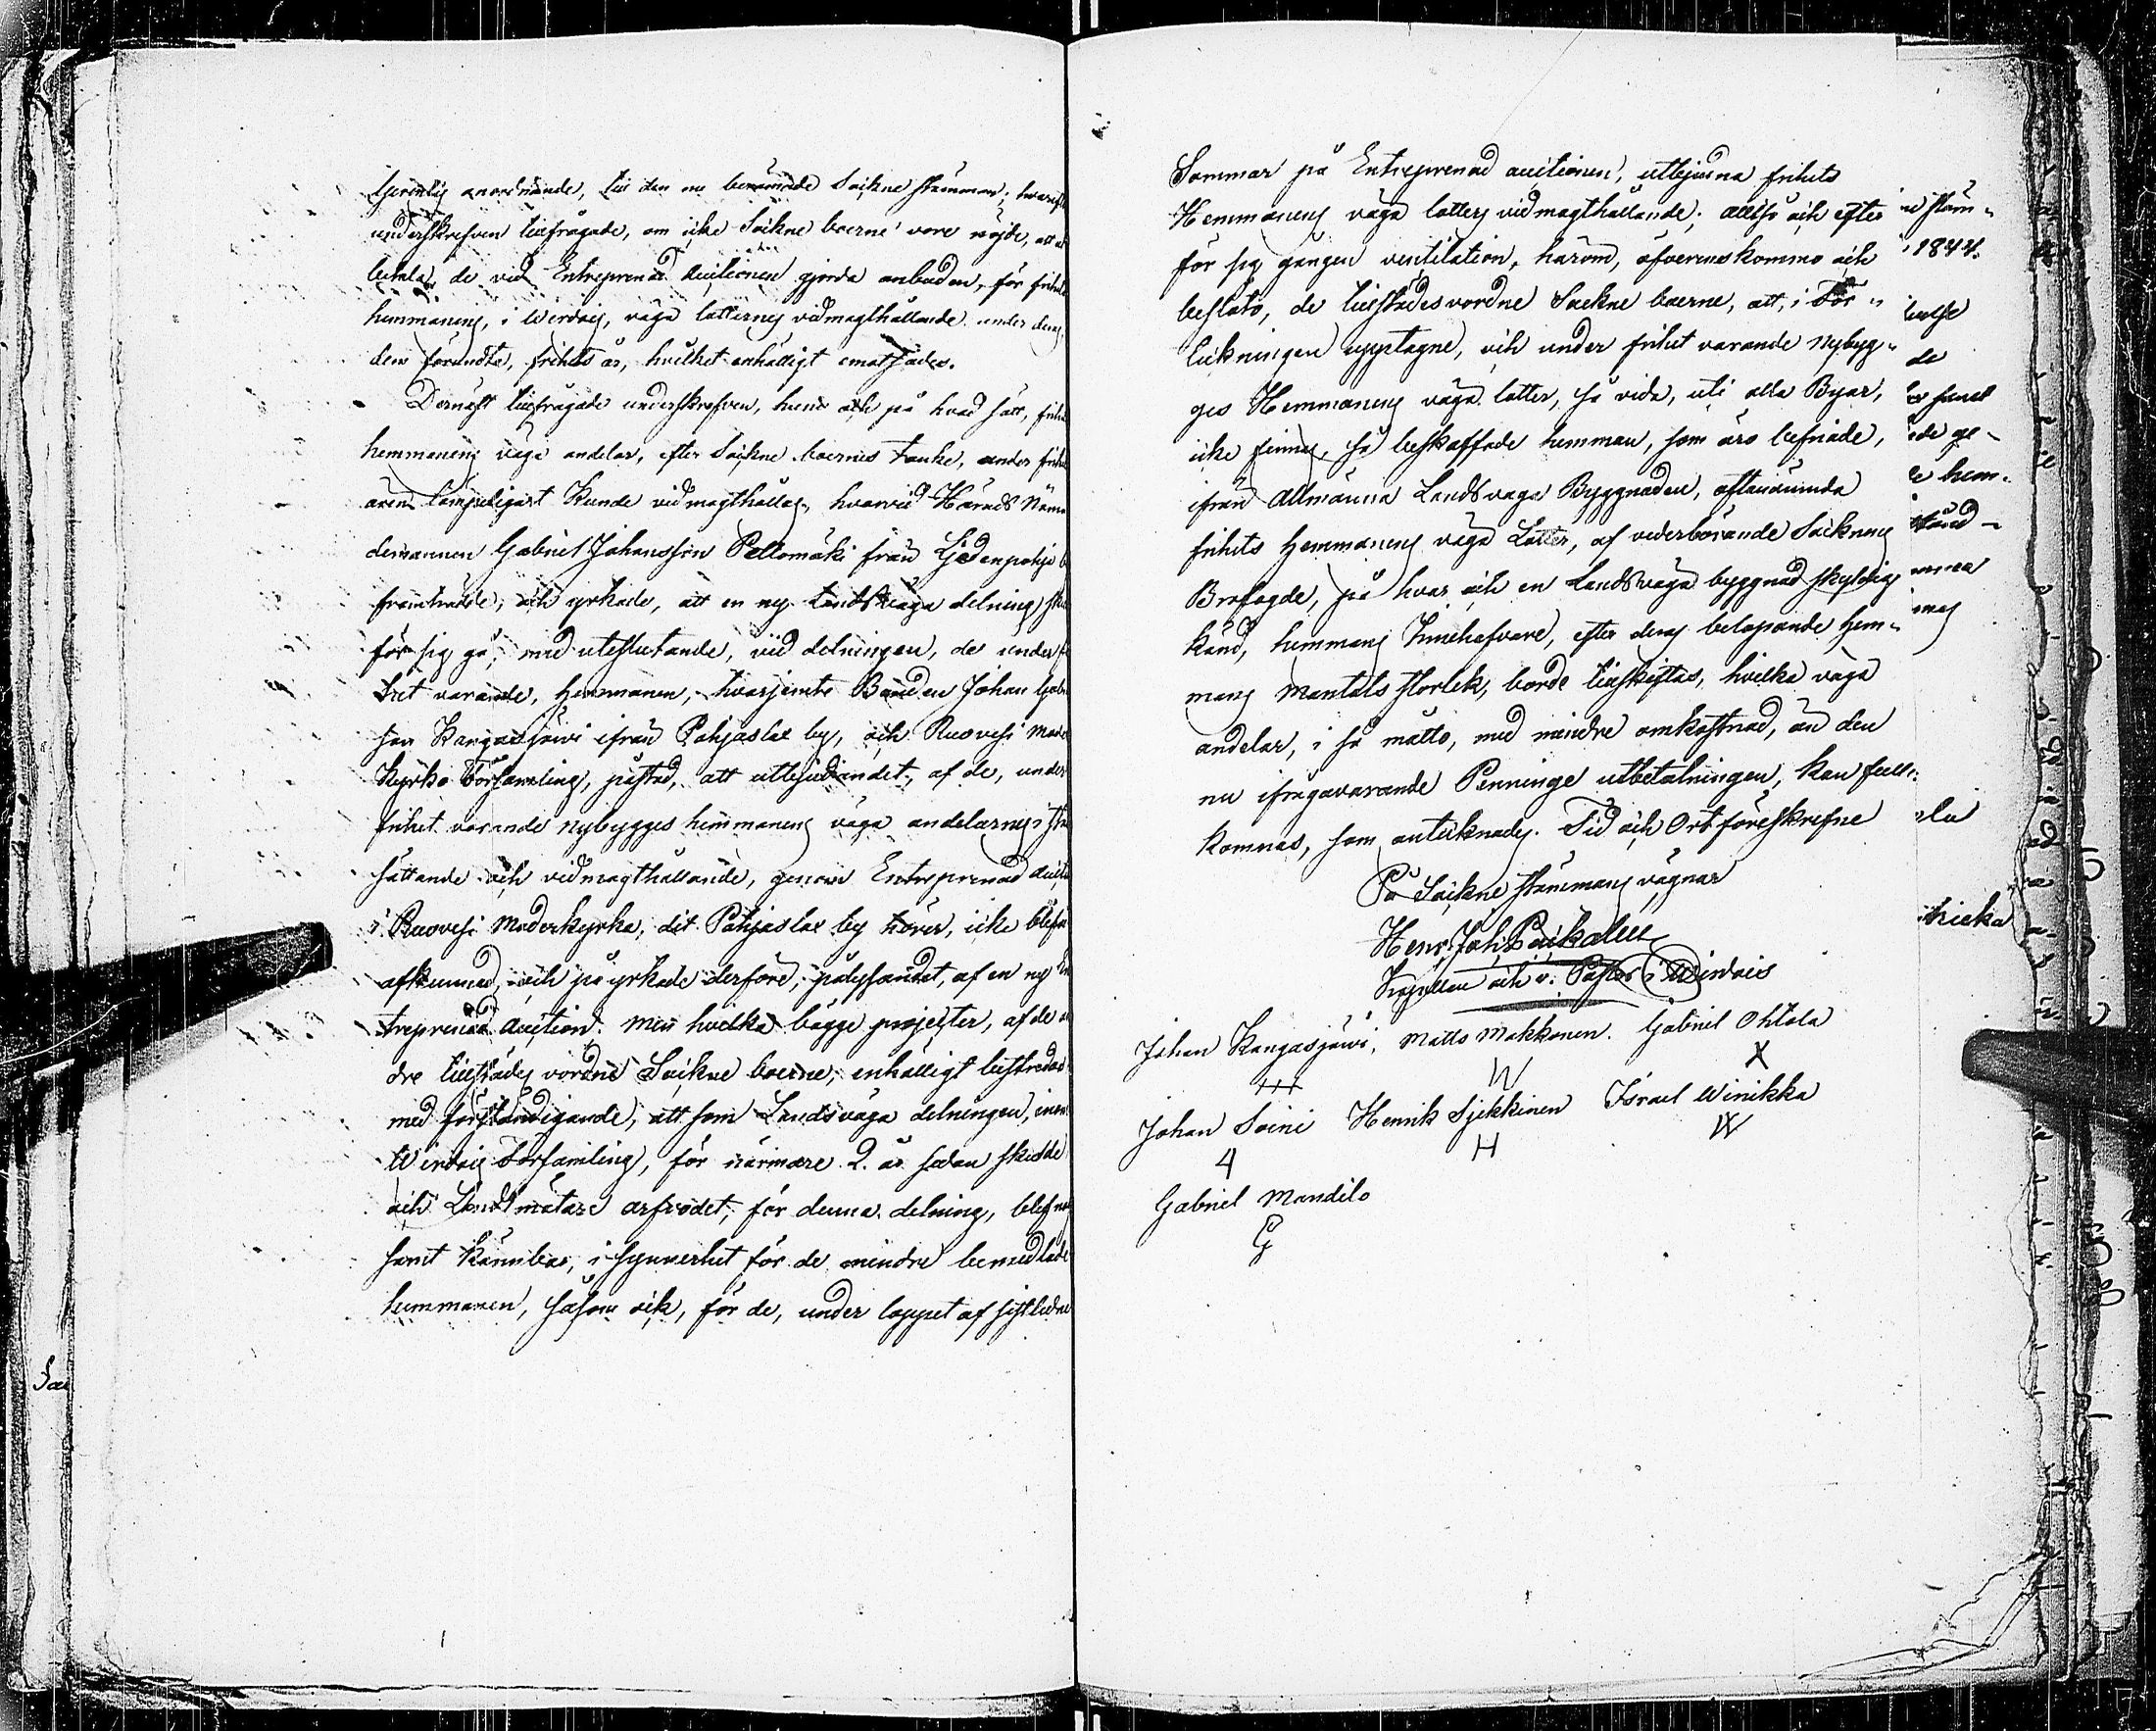 anordnande, till den nu berömde Sockne stämman; hvarefter
underskrefven tillfrågade, om icke Sockne boerne vore nöjde, att
betala de vid Entreprenad Auctionen gjorda anbuden, för frihets
hemmanens, i Werdois, väga lotternes vidmagthållande under deras
dem förundte, frihets år, hvilket enhälligt emotsades.
Dernäst tillfrågade underskrefven, huru och på hvad sätt, frihets
hemmanens väga andelar, efter Sockne boernes tanke, under frihets
åren lämpeligast kunde vidmagthållas, hvarvid Härads Nämn
demannen Gabriel Johansson Peltomäki från Ljedenpohja
framträdde, och yrkade, att en ny Landsväga delning
för sig gå, med uteslutande, vid delningen, de under
het varande, hemmanen, hvarjemte Bonden Johan Gabri
son Kangasjärvi ifrån Pohjaslax by, och Ruovesi Moder
kyrko Församling, påstod, att utbjudandet, af de, under
frihet varande nybygges hemmanens väga andelarnes i stånd
sättande och vidmagthållande, genom Entreprenad Auction
i Ruovesi Moderkyrka, dit Pohjaslax by hörer, icke blifvit
afkunnad, och på yrkade derföre, pålysandet, af en ny En
treprenad Auction. Men hvilka bägge projecter, af de an
dre tillstädes vordne Sockne boerne, enhälligt bestreddes
med förständigande, att som Landsväga delningen, inom
Wirdois Församling, för närmare 2. år sedan skedde
och Landtmätare arfvodet, för denna delning, blef nog
samt kännbar, i synnerhet för de mindre bemedlade
hemmanen, såsom ock, för de, under loppet af sistledne
Sommar på Entreprenad auctionen, utbjudna frihets
Hemmanens väga lotters vidmagthållande; alltså och efter
för sig gången ventilation, härom, öfverenskommo och
beslöto, de tillstädesvordne Sockne boerne, att, i För
lukningen upptagne, och under frihet varande nybyg-
ges Hemmanens väga lotter, så vida, uti alla Byar,
icke finnes, så beskaffade hemman, som äro befriade,
ifrån Allmänna Landsväga Byggnaden, oftanämnda
frihets hemmanens väga Lotter, af vederbörande Socknens
Brofogde, på hvar och en Landsväga byggnad skyldig
känd, hemmans Innehafvare, efter deras belöpande Hem-
mans Mantals storlek, borde tillskiftas, hvilka väga
andelar, i så måtto, med mindre omkostnad, än den
nu ifrågavarande Penninge utbetalningen, kan full-
komnas, som antecknades. Tid och Ort föreskrefne
På Sockne stämmans vägnar
Henr. Joh.
Kapellan och v: Pastor i Wirdois
Johan Kangasjärvi, Matts Makkonen. Gabriel Ohtola
Johan Soini Henrik Sjekkinen Israel Winikka
Gabriel Mandilo
1844.